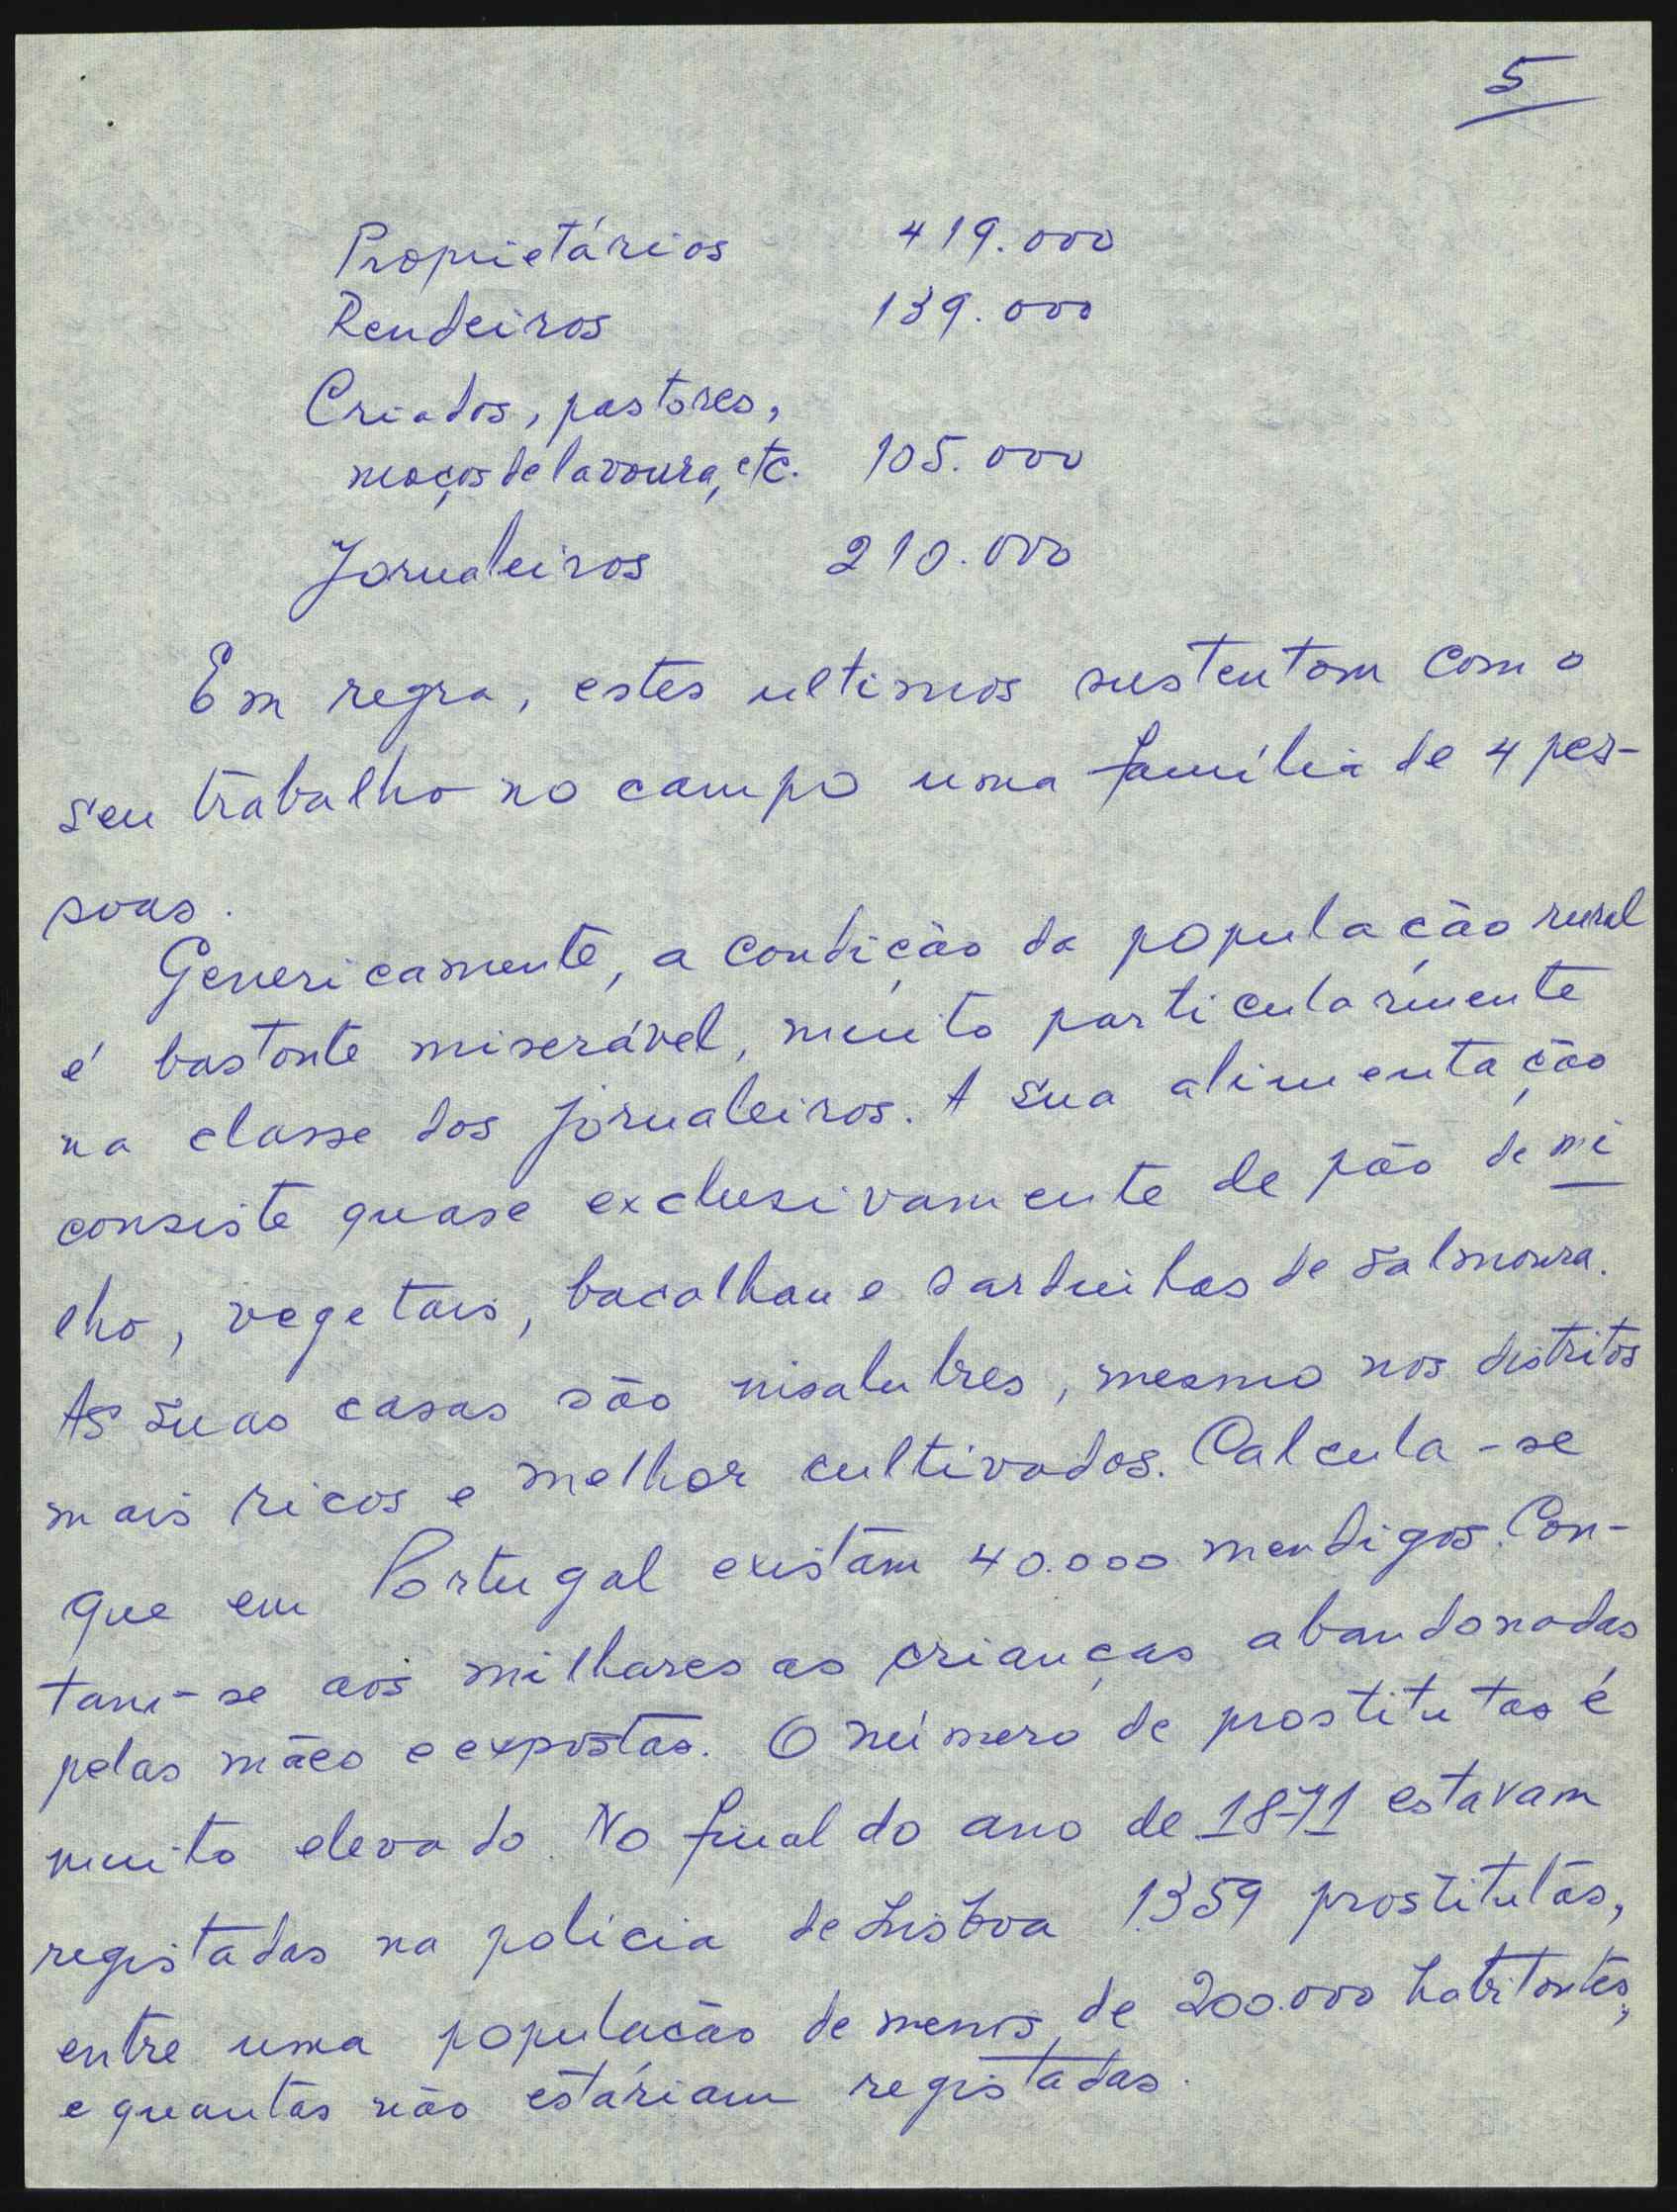 5
Proprietários 419.000
Rendeiros 139.000
Criados, pastores,
moços de lavoura, etc. 105.000
Jornaleiros 210.000
Em regra, estes ultimos sustentam com o
seu trabalho no campo uma família de 4 pes-
soas.
Genericamente, a condição da população rural
é bastante miserável, muito particularmente
na classe dos jornaleiros. A sua alimentação
consiste quase exclusivamente de pão de mi
lho, vegetais, bacalhau e sardinhas de salmoura.
As suas casas são insalubres, mesmo nos distritos
mais ricos e melhor cultivados. Calcula-se
que em Portugal existam 40.000 mendigos. Con-
tam-se aos milhares as crianças abandonadas
pelas mães e expostas. O número de prostitutas é
muito elevado. No final do ano de 1871 estavam
registadas na policia de Lisboa 1359 prostitutas,
entre uma população de menos de 200.000 habitantes,
e quantas não estáriam registadas.